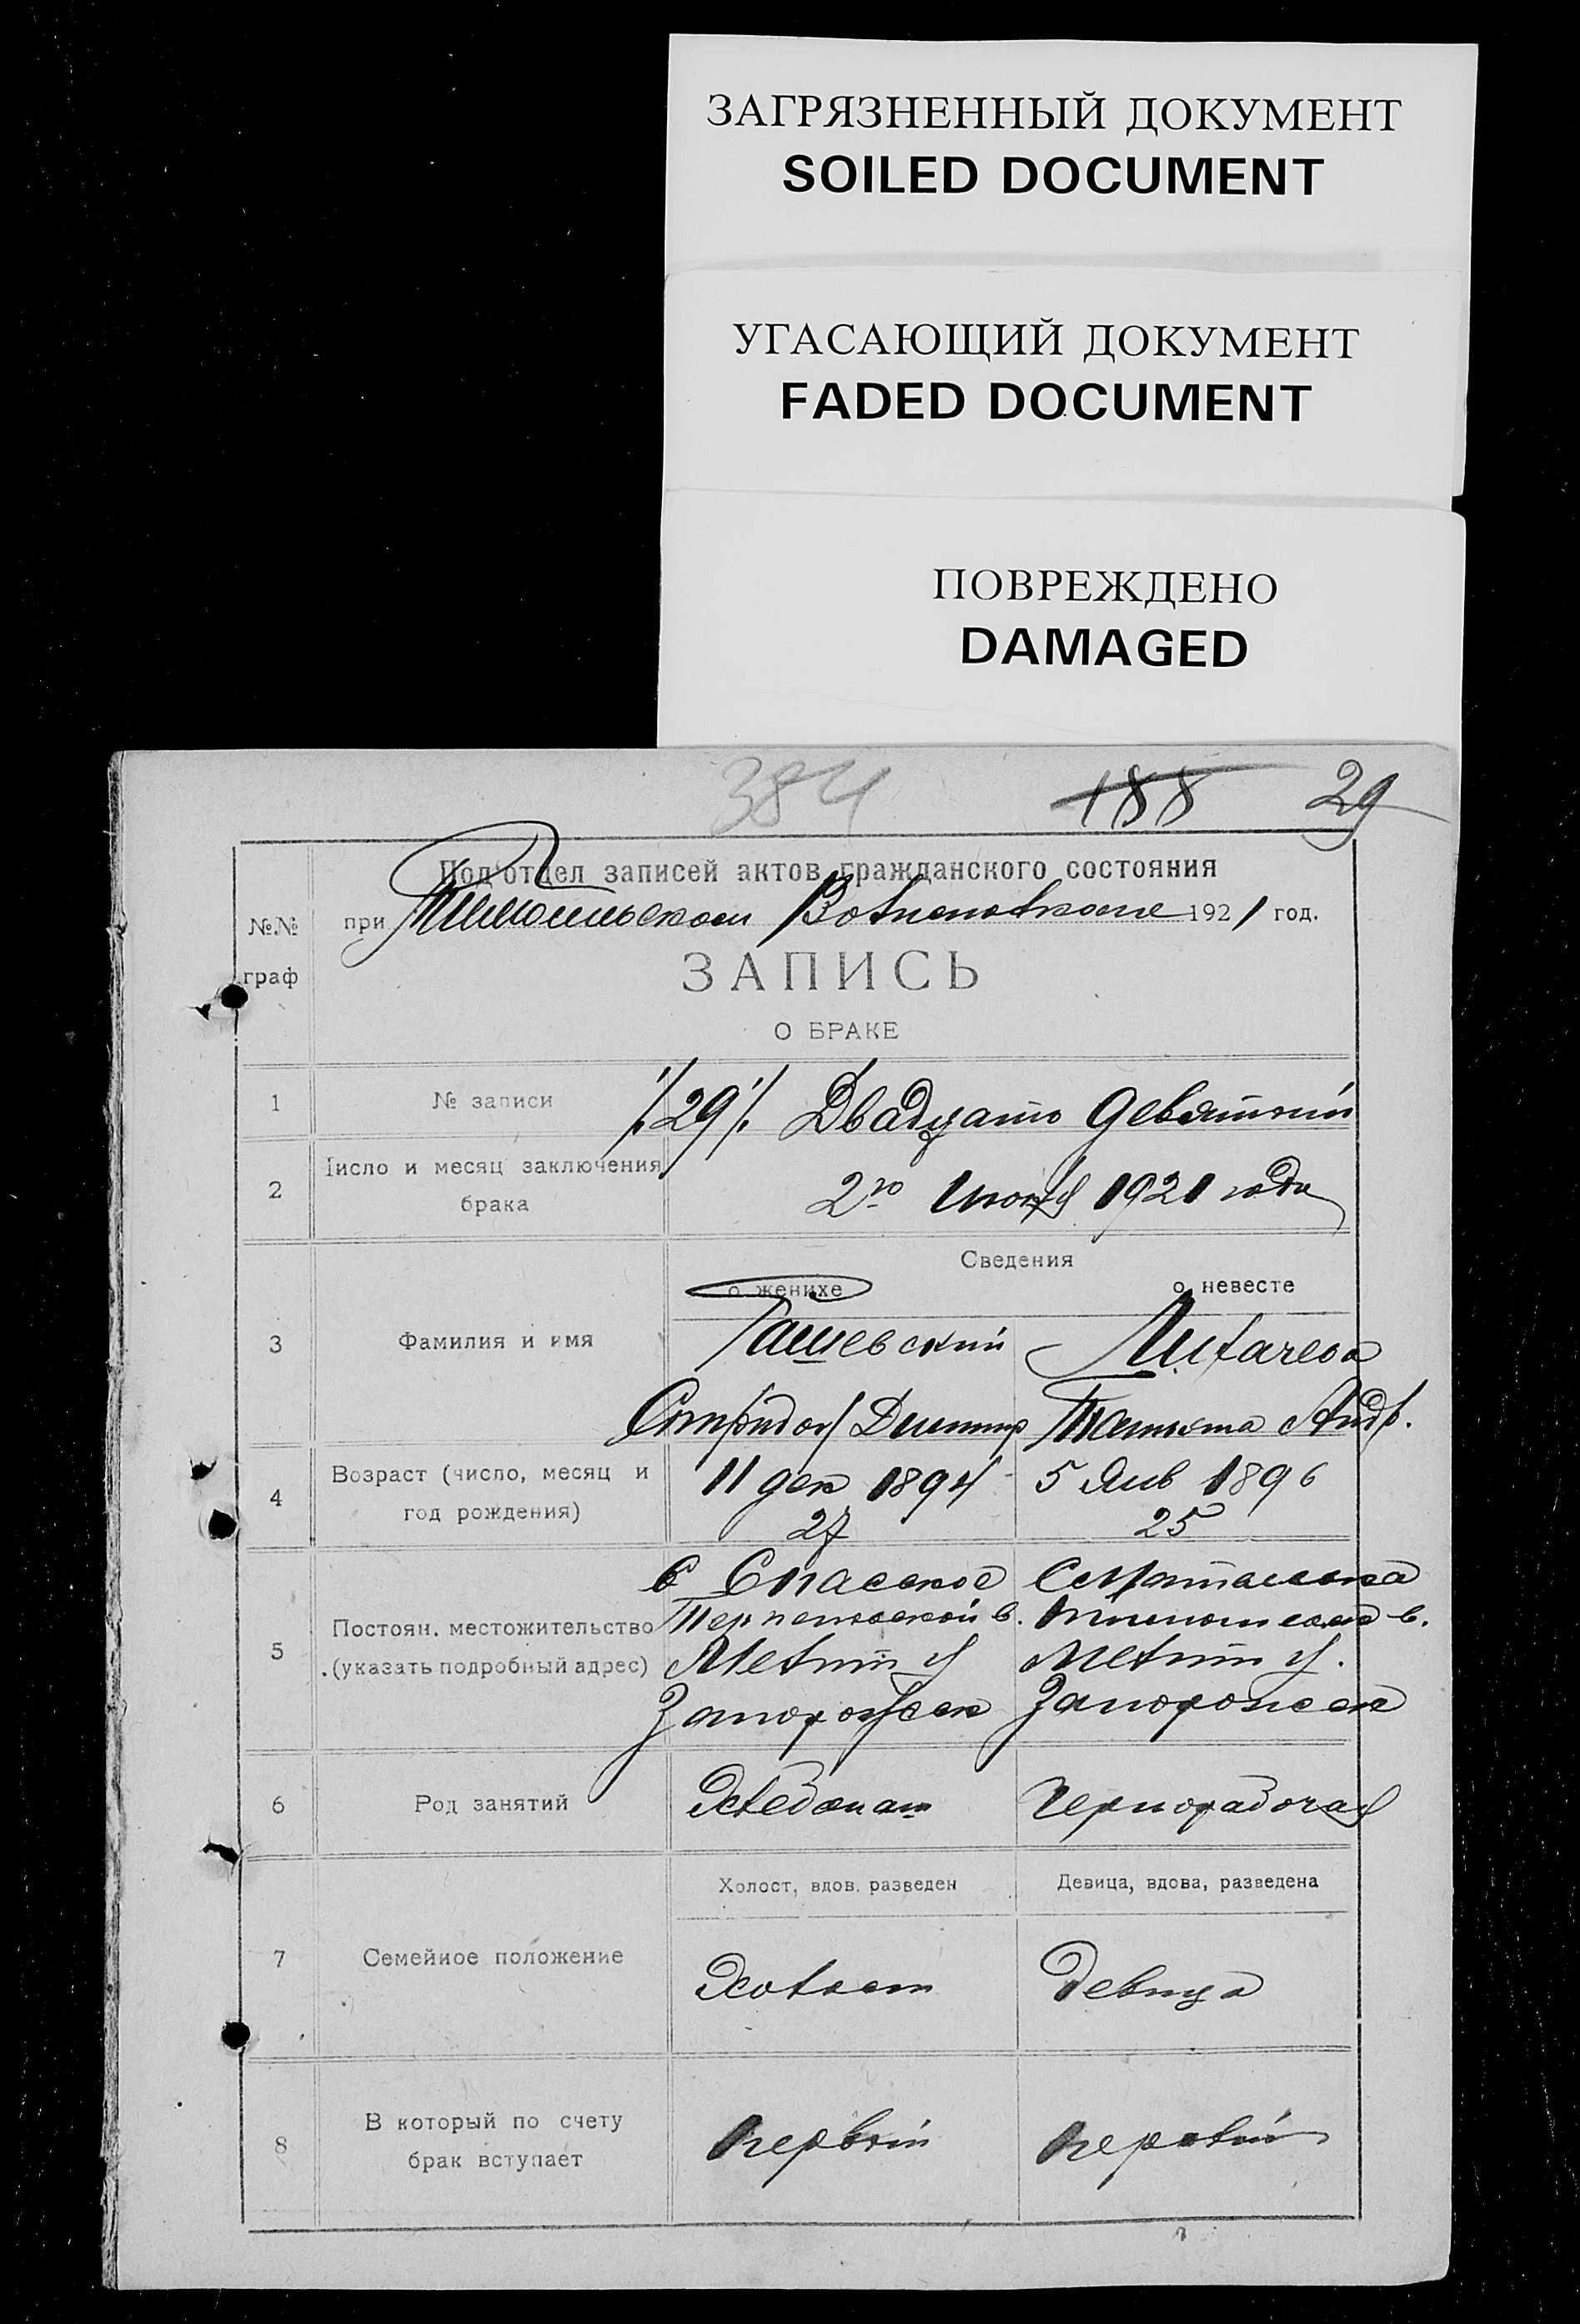 ЗАГРЯЗНЕННЫЙ ДОКУМЕНТ
SOILED DOCUMENT
УГАСАЮЩИЙ ДОКУМЕНТ
FADED DOCUMENT
ПОВРЕЖДЕНО
DAMAGED
384 188 29
Подотдел записей актов гражданского состояния
№.№ при Волисполкоме 1921 год.
граф
ЗАПИСЬ
О БРАКЕ
1 № записи ./.29./. Двадцать девятый
2 Число и месяц заключения
брака
2го 1921 года
Сведения
о женихе о невесте
3 Фамилия и имя
Гашевский Лихачева
Спиридон Андр.
4 Возраст (число, месяц и
год рождения)
11 дек 1894 5 Янв 1896
27 25
5 Постоян. местожительство
(указать подробный адрес)
с Спаское
Терпеньевской в.
Мелит у Мелит у.
Запорожск Запорожск
6 Род занятий
Хлебопаш Чернорабочая
Холост, вдов. разведен Девица, вдова, разведена
7 Семейное положение
Холост Девица
8 В который по счету
брак вступает
первый первый